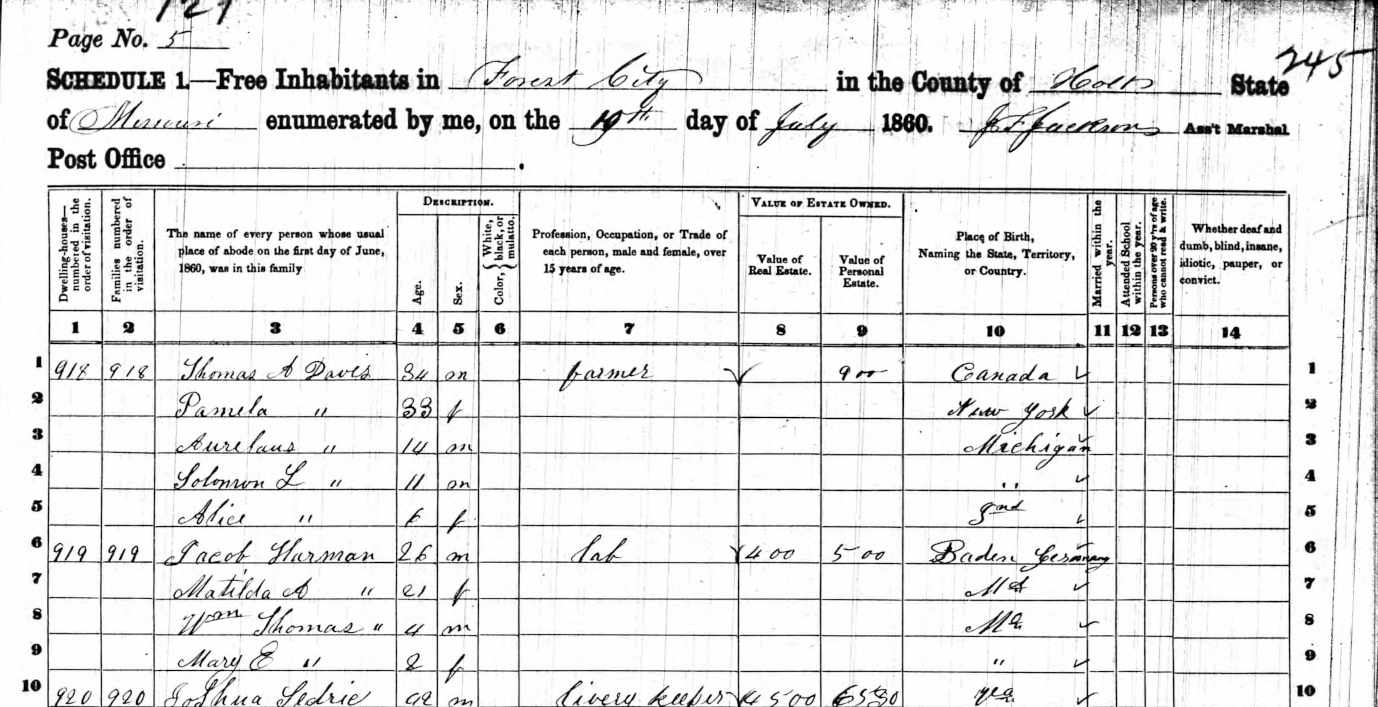 Page No. 5
245
SCHEDULE 1.—Free Inhabitants in Forest City in the County of Holt State
of Missouri enumerated by me, on the 19th day of July 1860. J. T. Jackson Ass't Marshal
Post Office .
Dwelling-houses—numbered in the order of visitation.
Families numbered in the order of visitation.
The name of every person whose usual place of abode on the first day of June, 1860, was in this family
DESCRIPTION.
Age.
Sex.
Color, { White, black, or mulatto.
Profession, Occupation, or Trade of each person, male and female, over 15 years of age.
VALUE OF ESTATE OWNED.
Value of Real Estate.
Value of Personal Estate.
Place of Birth, Naming the State, Territory, or Country.
Married within the year.
Attended School within the year.
Persons over 20 y'rs of age who cannot read & write.
Whether deaf and dumb, blind, insane, idiotic, pauper, or convict.
1 2 3 4 5 6 7 8 9 10 11 12 13 14
1 918 918 Thomas A Davis 34 m farmer 900 Canada 1
2 Pamela " 33 f New York 2
3 Aurelaus " 14 m Michigan 3
4 Solomon L " 11 m " 4
5 Alice " 6 f Ind 5
6 919 919 Jacob Harman 26 m lab 400 500 Baden Germany 6
7 Matilda A " 21 f 7
8 Wm Thomas " 4 m Mo 8
9 Mary E " 2 f " 9
10 920 920 Joshua 42 m livery keeper 4500 10